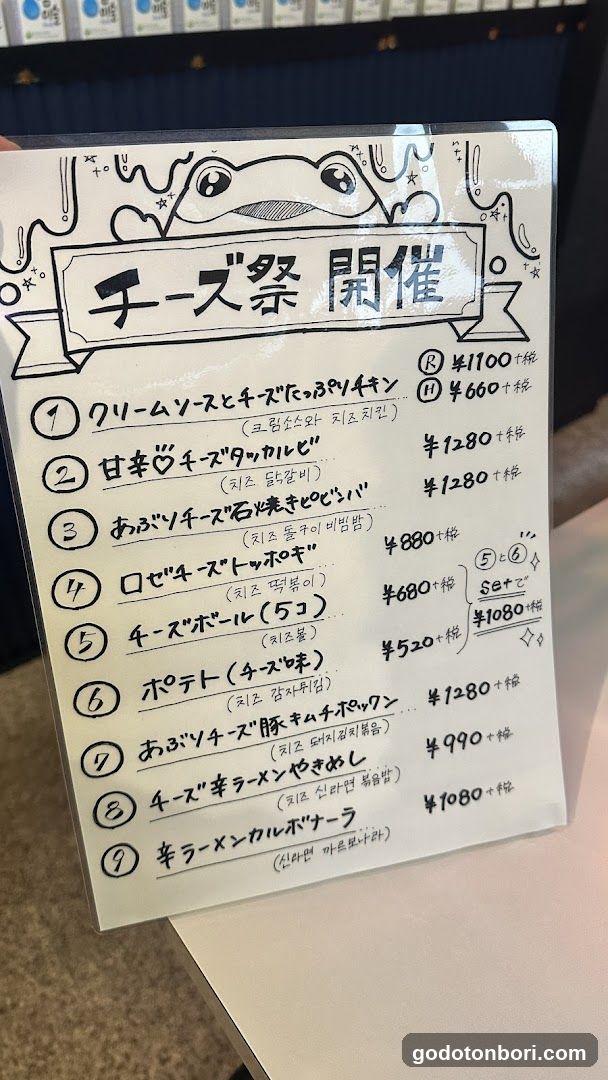 チーズ祭 開催
① クリームソースとチーズたっぷりチキン Ⓡ ¥1100+税
Ⓗ ¥660+税
(크림소스와 치즈치킨)
② 甘辛♡チーズタッカルビ ¥1280+税
(치즈 닭갈비)
③ あぶりチーズ石焼きピビンバ ¥1280+税
(치즈 돌구이 비빔밥)
④ ロゼチーズトッポギ ¥880+税
(치즈 떡볶이)
⑤ チーズボール(5コ) ¥680+税
(치즈볼)
⑥ ポテト(チーズ味) ¥520+税
(치즈 감자튀김)
⑤と⑥
setで
¥1080+税
⑦ あぶりチーズ豚キムチポックン ¥1280+税
(치즈 돼지김치볶음)
⑧ チーズ辛ラーメンやきめし ¥990+税
(치즈 신라면 볶음밥)
⑨ 辛ラーメンカルボナーラ ¥1080+税
(신라면 까르보나라)
godotonbori.com